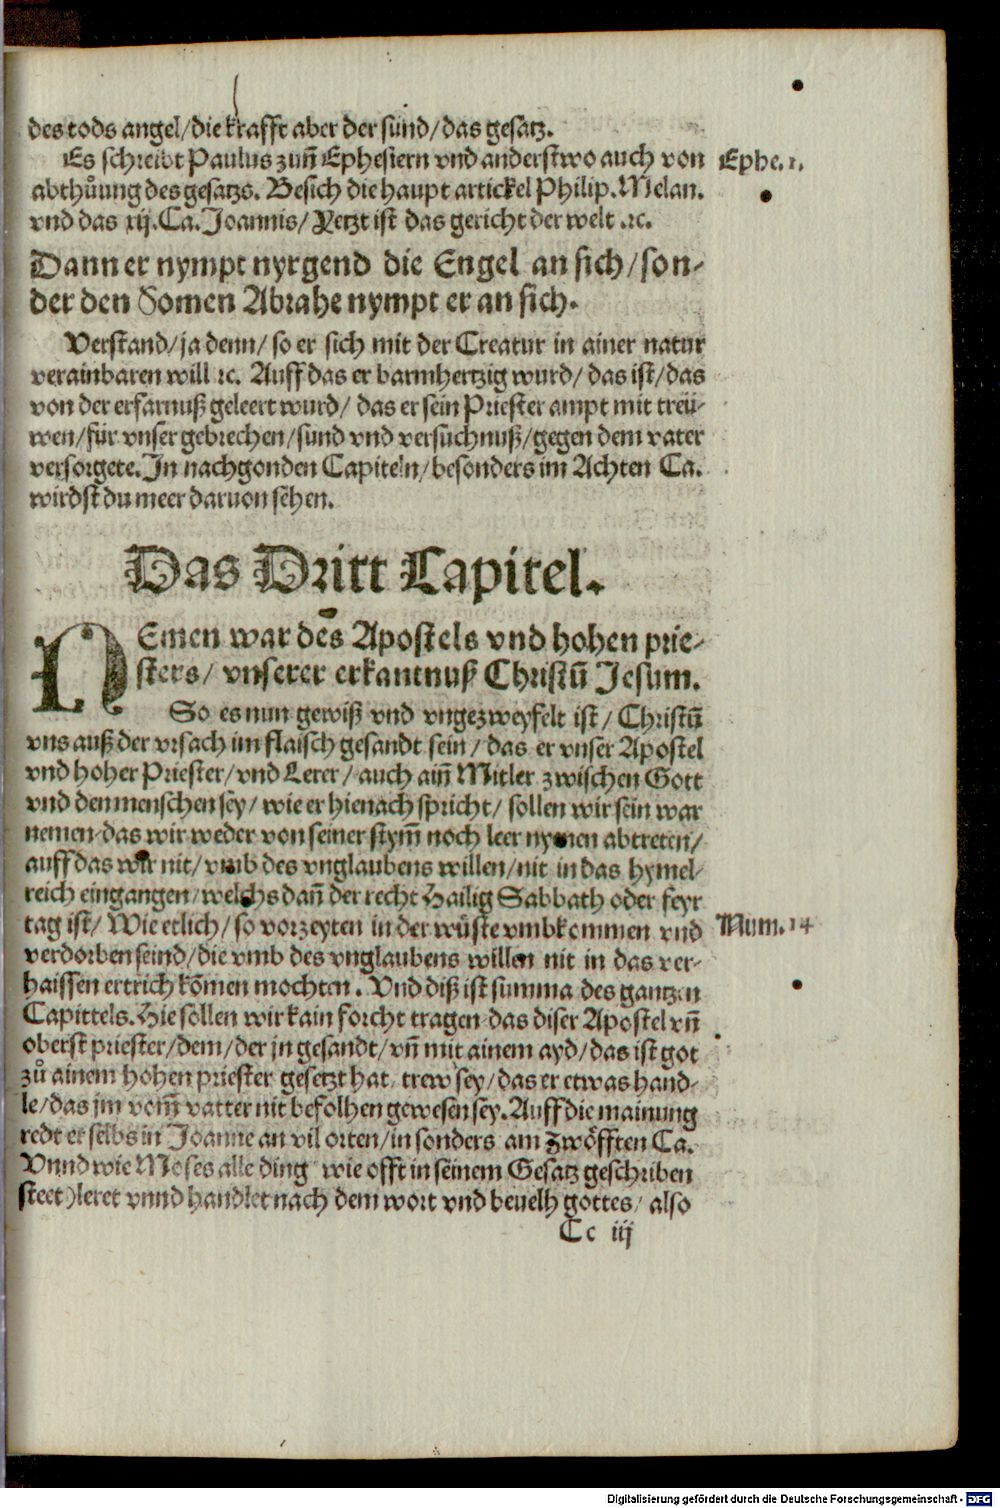 des tods angel/die krafft aber der sünd/das gesatz.
Es schreibt Paulus zuñ Ephesiern vnd anderstwo auch von
abthůung des gesatzs. Besich die haupt artickel Philip. Melan.
vnd das xij. Ca. Joannis/ Yetzt ist das gericht der welt ꝛc.
Ephe. 1.
Dann er nympt nyrgend die Engel an sich/son-
der den Somen Abrahe nympt er an sich.
Verstand/ja denn/ so er sich mit der Creatur in ainer natur
verainbaren will ꝛc. Auff das er barmhertzig wurd/ das ist/das
von der erfarnuß geleert wurd/ das er sein Priester ampt mit treü-
wen/für vnser gebrechen/sünd vnd versůchnuß/gegen dem vater
versorgete. In nachgonden Capiteln/besonders im Achten Ca.
wirdst du meer daruon sehen.
Das Dritt Capitel.
NEmen war des Apostels vnd hohen prie-
sters/ vnserer erkantnuß Christū Jesum.
So es nun gewiß vnd vngezweyfelt ist/ Christū
vns auß der vrsach im flaisch gesandt sein/ das er vnser Apostel
vnd hoher Priester/vnd Lerer/ auch aiñ Mitler zwischen Gott
vnd den menschen sey/ wie er hienach spricht/ sollen wir sein war
nemen das wir weder von seiner stym̄ noch leer nymen abtreten/
auff das wir nit/ vmb des vnglaubens willen/nit in das hymel-
reich eingangen/welchs dañ der recht Hailig Sabbath oder feyr
tag ist/ Wie etlich/ so vorzeyten in der wüste vmbkommen vnd
Num. 14
verdorben seind/die vmb des vnglaubens willen nit in das ver-
haissen ertrich kõmen mochten. Vnd diß ist summa des gantzen
Capittels. Hie sollen wir kain forcht tragen das diser Apostel vñ
oberst priester/dem/der jn gesandt/vñ mit ainem ayd/das ist got
zů ainem hohen priester gesetzt hat/ trew sey/das er etwas hand-
le/das jm vom̄ vatter nit befolhen gewesen sey. Auff die mainung
redt er selbs in Joanne an vil orten/in sonders am zwölfften Ca.
Vnnd wie Moses alle ding wie offt in seinem Gesatz geschriben
steet)leret vnnd handlet nach dem wort vnd beuelh gottes/ also
Cc iij
Digitalisierung gefördert durch die Deutsche Forschungsgemeinschaft - DFG